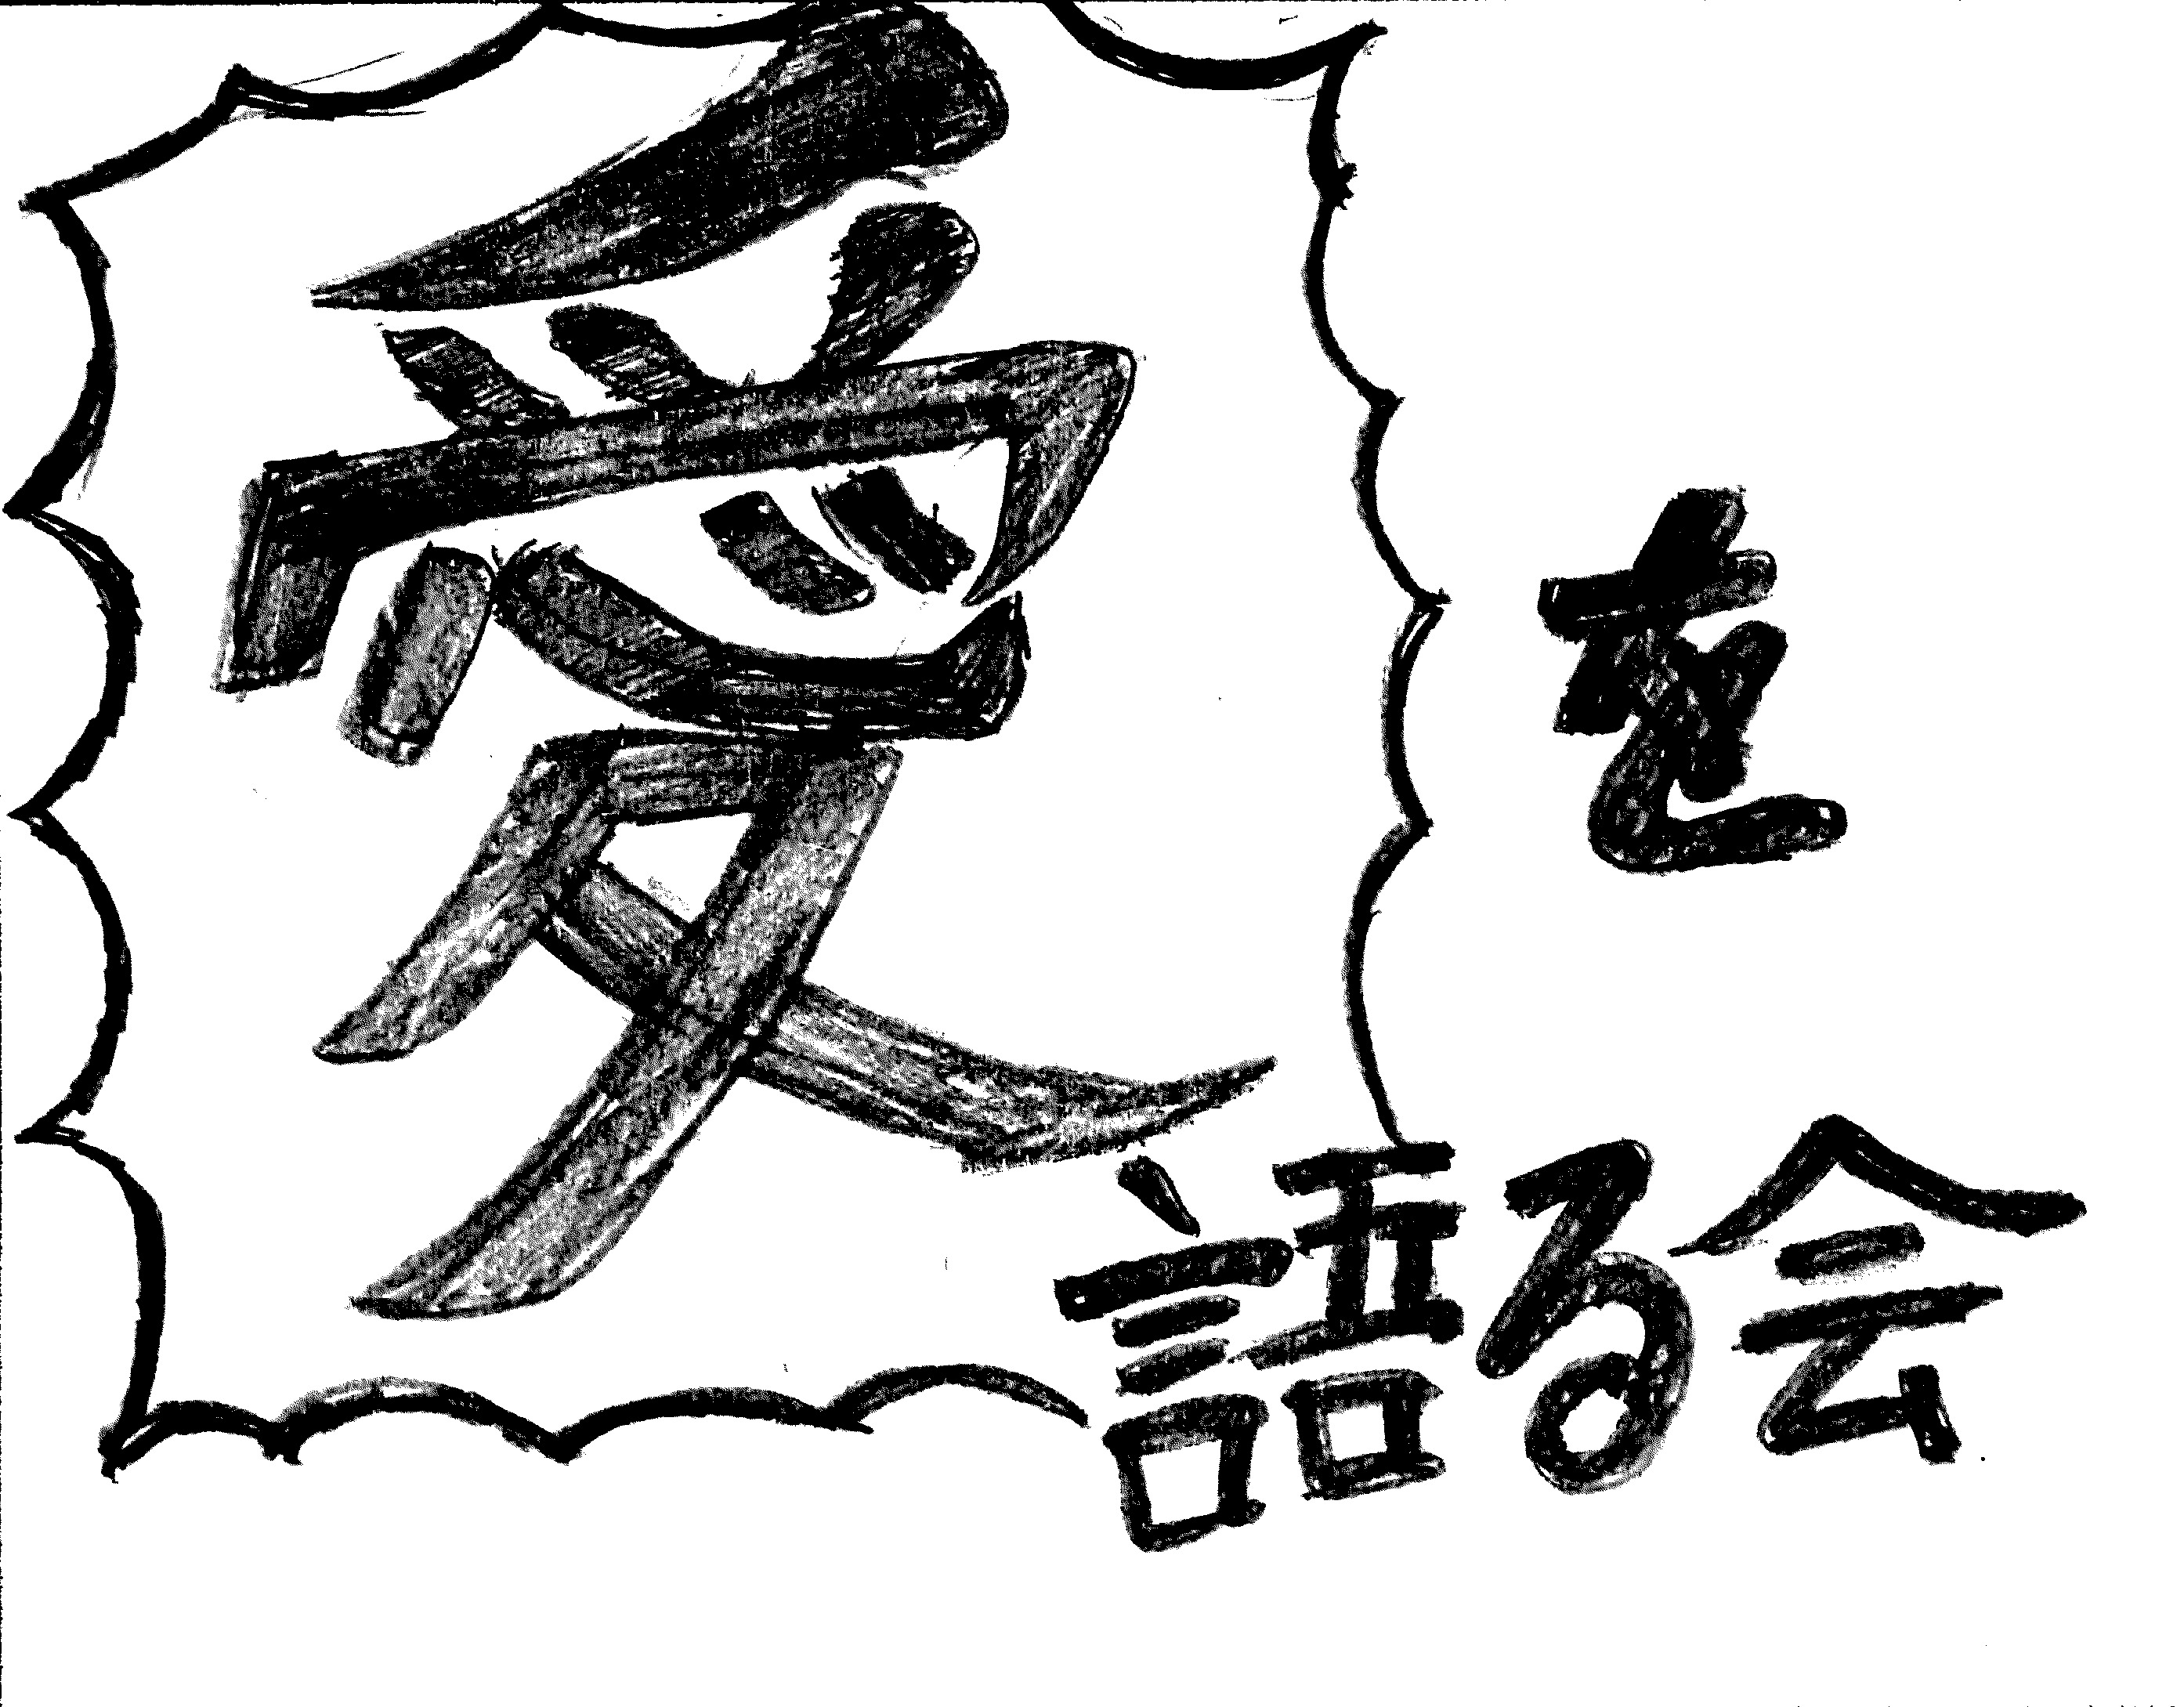 愛
を
語る会